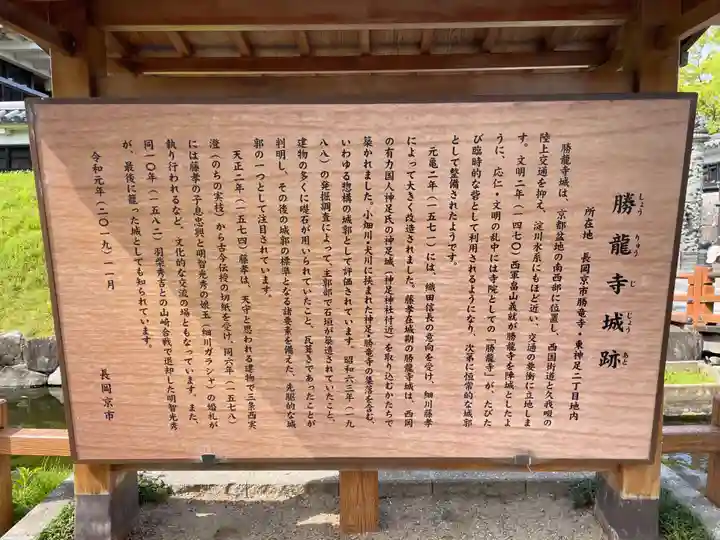 勝龍寺城跡
しょうりゅうじじょうあと
所在地　長岡京市勝竜寺・東神足二丁目地内
勝龍寺城は、京都盆地の南西部に位置し、西国街道と久我畷の
陸上交通を抑え、淀川水系にもほど近い、交通の要衝に立地しま
す。文明二年（一四七〇）西軍畠山義就が勝龍寺を陣城としたよ
うに、応仁・文明の乱中には寺院としての「勝龍寺」が、たびた
び臨時的な砦として利用されるようになり、次第に恒常的な城郭
として整備されたようです。
元亀二年（一五七一）には、織田信長の意向を受け、細川藤孝
によって大きく改造されました。藤孝在城期の勝龍寺城は、西岡
の有力国人神足氏の神足城（神足神社付近）を取り込むかたちで
築かれました。小畑川・犬川に挟まれた神足・勝竜寺の集落を含む、
いわゆる惣構の城郭として評価されています。昭和六三年（一九
八八）の発掘調査によって、主郭部で石垣が築造されていたこと、
建物の多くに礎石が用いられていたこと、瓦葺きであったことが
判明し、その後の城郭の標準となる諸要素を備えた、先駆的な城
郭の一つとして注目されています。
天正二年（一五七四）藤孝は、天守と思われる建物で三条西実
澄（のちの実枝）から古今伝授の切紙を受け、同六年（一五七八）
には藤孝の子息忠興と明智光秀の娘玉（細川ガラシャ）の婚礼が
執り行われるなど、文化的な交流の場ともなっています。また、
同一〇年（一五八二）羽柴秀吉との山崎合戦で退却した明智光秀
が、最後に籠った城としても知られています。
令和元年（二〇一九）一一月
長岡京市